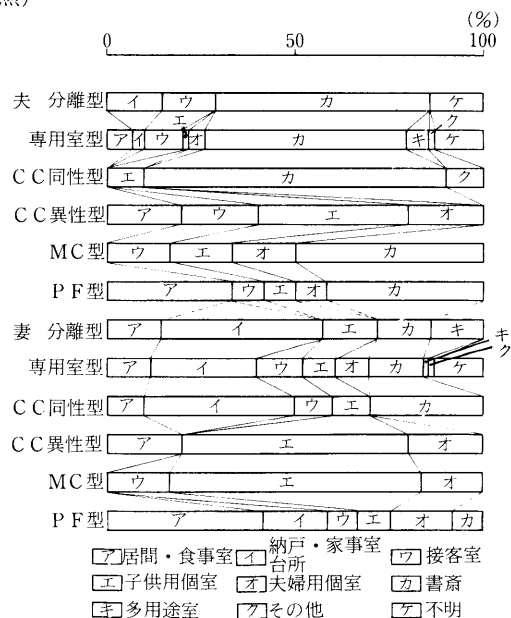 (%)
0 50 100
夫 分離型 イ ウ カ ケ
エ ク
専用室型 ア イ ウ オ カ キ ケ
CC同性型 エ カ ク
CC異性型 ア ウ エ オ
MC型 ウ エ オ カ
PF型 ア ウ エ オ カ
妻 分離型 ア イ エ カ キ
キ
ク
専用室型 ア イ ウ エ オ カ ケ
CC同性型 ア イ ウ エ カ
CC異性型 ア エ オ
MC型 ウ エ オ
PF型 ア イ ウ エ オ カ
ア居間・食事室 イ納戸・家事室 台所 ウ接客室
エ子供用個室 オ夫婦用個室 カ書斎
キ多用途室 クその他 ケ不明